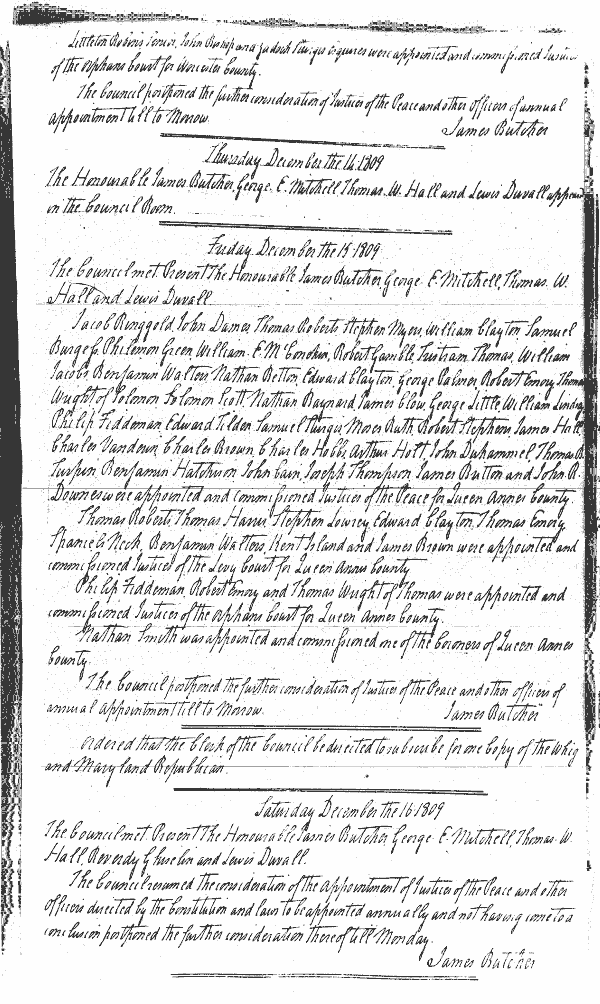 Littleton Robins Senior, John Bishop and Zadock Sturgis Esquires were appointed and commissioned Justices
of the orphans Court for Worcester County.
The Council postponed the further consideration of Justices of the Peace and other Officers of annual
appointment till to Morrow.
James Butcher
Thursday December the 1809
The Honourable James Butcher, George. E. Mitchell Thomas. W. Hall and Lewis Duvall appeared
in the Council Room.
Friday December the 15 1809
The Council met. Present The Honourable James Butcher George. E. Mitchell, Thomas. W.
Hall and Lewis Duvall
Jacob Ringgold, John Dames, Thomas Roberts Stephen Myers, William Clayton Samuel
Burgess, Philemon Green, William. E. Robert Gamble, Tristram Thomas, William
Jacobs Benjamin Walters Nathan Betton, Edward Clayton, George Palmer, Robert Emory Thomas
Wright of Solomon Solomon Scott, Nathan Baynard James Clow, George Little, William
Philip Fiddeman, Edward Tilden Samuel Moses Ruth, Robert Stephens James Hall,
Charles Vanderm, Charles Brown, Charles Hobbs Arthur Holt, John Duhammel, Thomas B.
Turpin Benjamin Hatcheson John Cain, Joseph Thompson, James Britton and John R.
Downes were appointed and commissioned Justices of the Peace for Queen Annes County
Thomas Roberts, Thomas Harris, Stephen Lowrey Edward Clayton, Thomas Emory,
Spaniels Neck, Benjamin Walters, Kent Island and James Brown were appointed and
commissioned Justices of the Levy Court for Queen Annes County
Philip Fiddeman, Robert Emory and Thomas Wright of Thomas were appointed and
commissioned Justices of the orphans Court for Queen Annes County.
Nathan Smith was appointed and commissioned one of the Coroners of Queen Annes
County.
The Council postponed the further consideration of Justices of the Peace and other officers of
annual appointment till to Morrow.
James Butcher
ordered that the Clerk of the Council be directed to subscribe for one Copy of the Whig
and Maryland Republican.
Saturday December the 16 1809
The Council met. Present The Honourable James Butcher George. E. Mitchell, Thomas. W.
Hall, Reverdy Ghiselin and Lewis Duvall.
The Council resumed the consideration of the appointment of Justices of the Peace and other
officers directed by the Constitution and laws to be appointed annually and not having come to a
conclusion postponed the further consideration thereof till Monday.
James Butcher